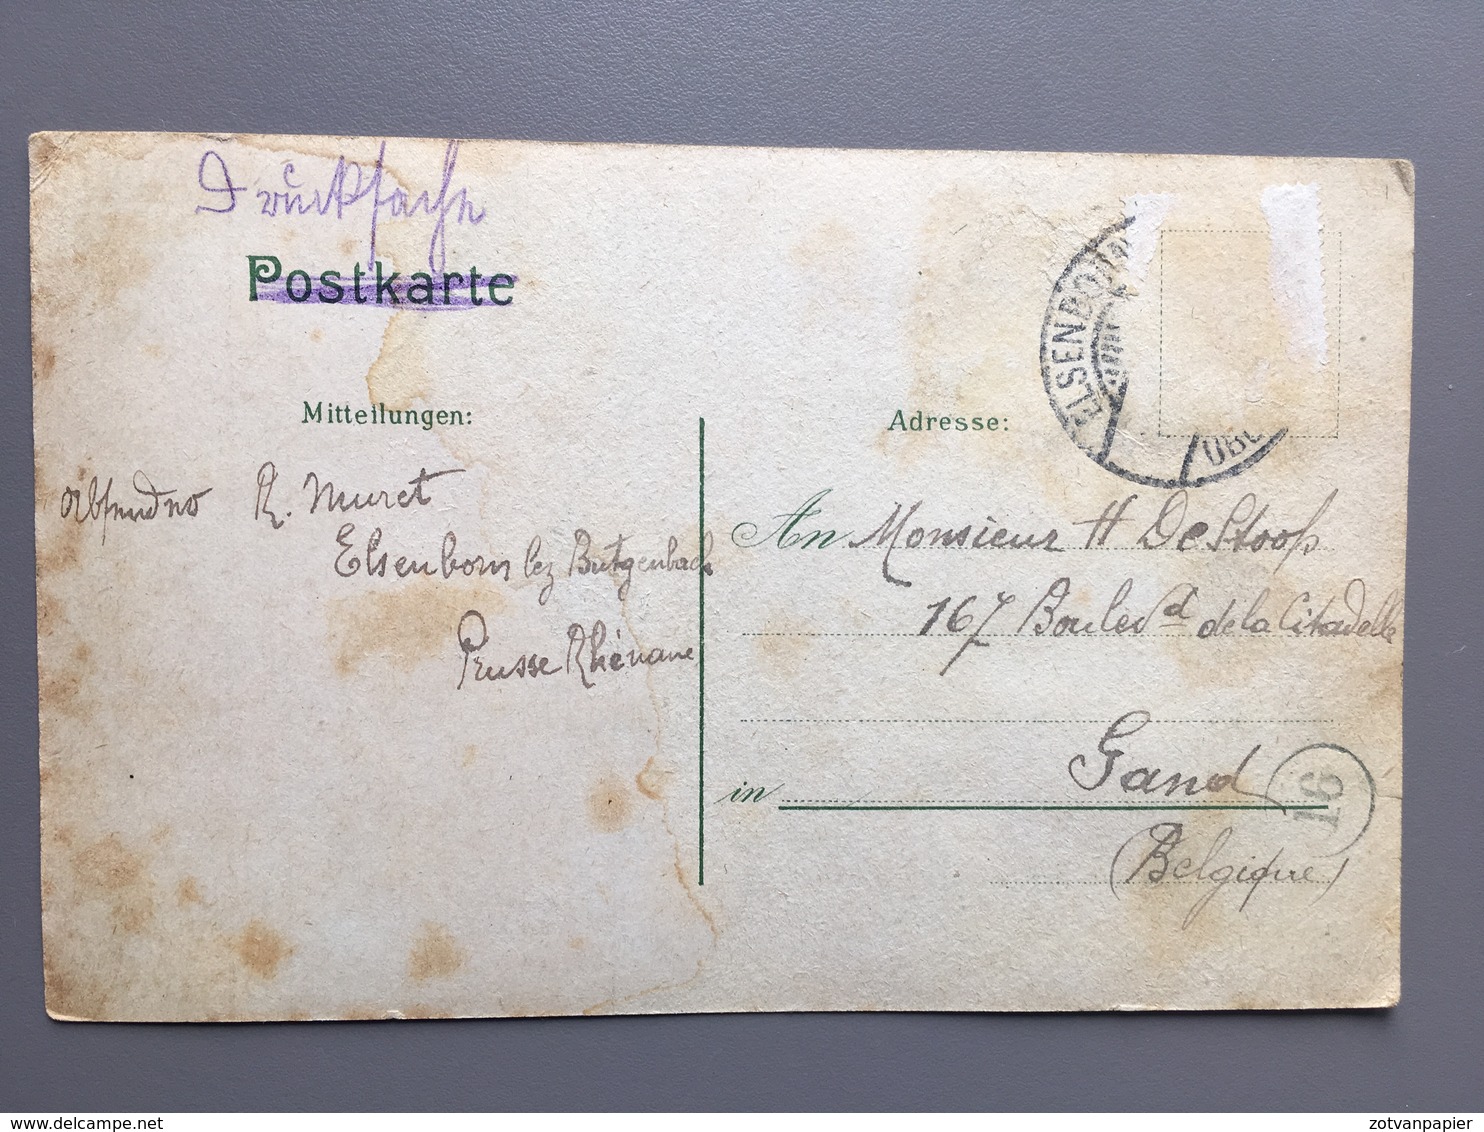 Drucksache
Postkarte
Mitteilungen:
Adresse:
ELSENBORN
ÜBU
R. Muret
Elsenborn lez Butgenbach
Prusse Rhénane
An Monsieur H De Stoop
167 Boulevd de la Citadelle
in Gand
16
(Belgique)
www.delcampe.net
zotvanpapier